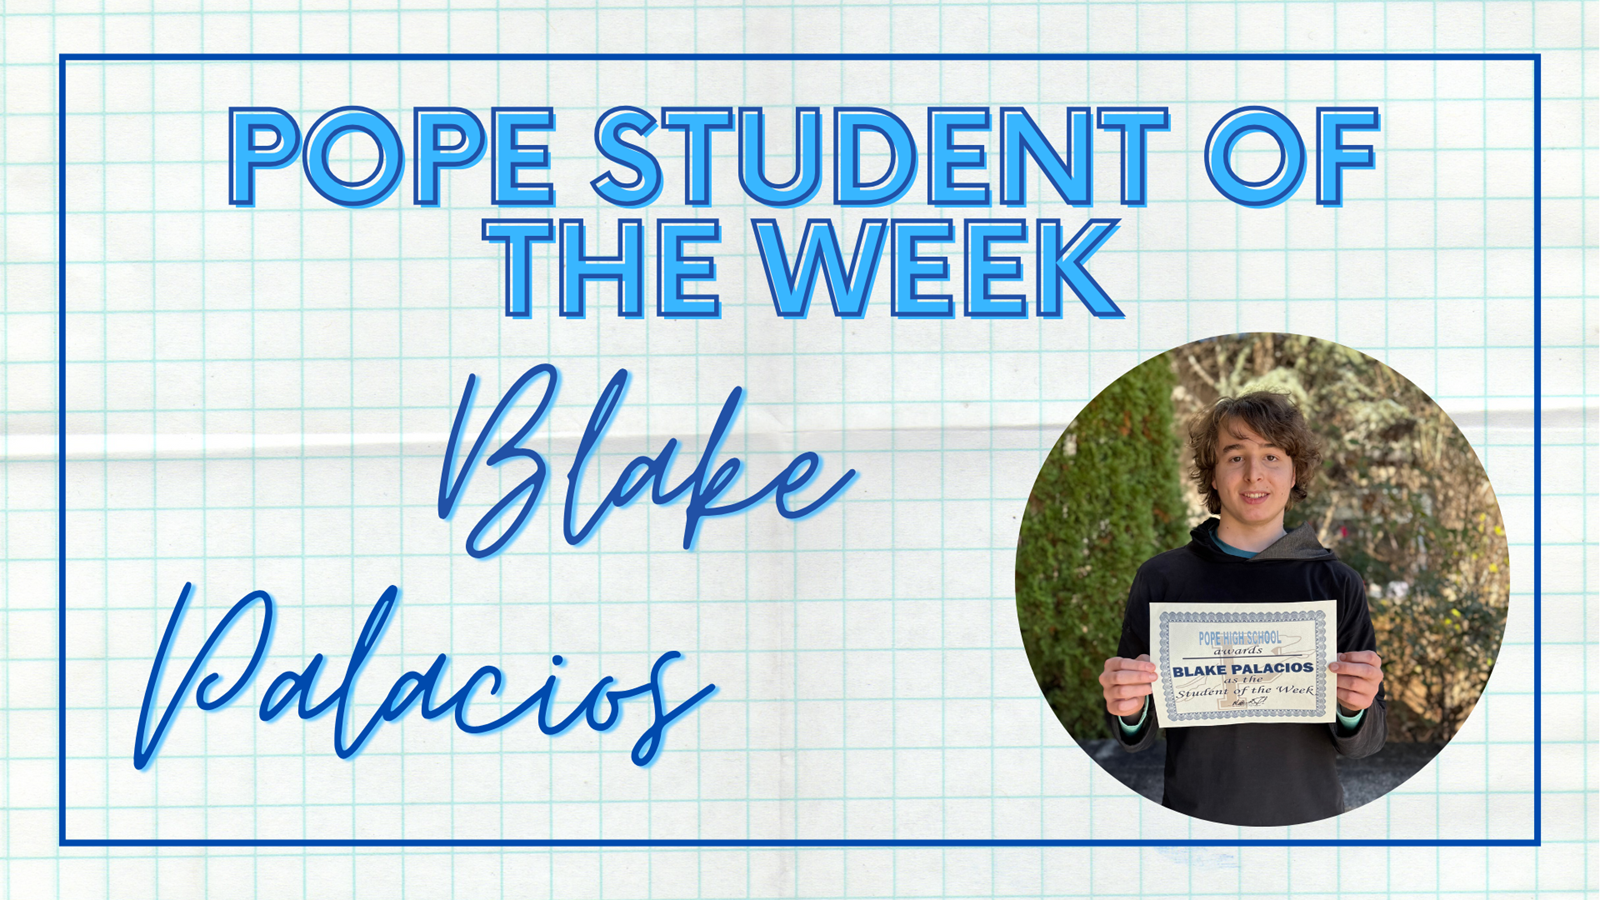 POPE STUDENT OF
THE WEEK
Blake
Palacios
POPE HIGH SCHOOL
awards
BLAKE PALACIOS
as the
Student of the Week